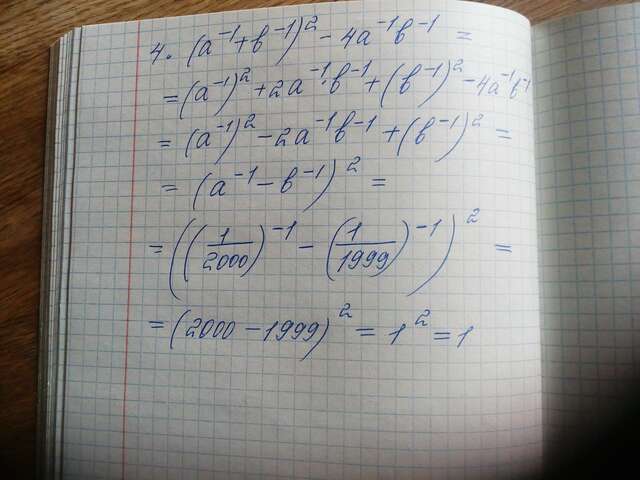 4. (a⁻¹+b⁻¹)² - 4a⁻¹b⁻¹ =
= (a⁻¹)² + 2a⁻¹·b⁻¹ + (b⁻¹)² - 4a⁻¹b⁻¹
= (a⁻¹)² - 2a⁻¹b⁻¹ + (b⁻¹)² =
= (a⁻¹ - b⁻¹)² =
= ((1/2000)⁻¹ - (1/1999)⁻¹)² =
= (2000 - 1999)² = 1² = 1